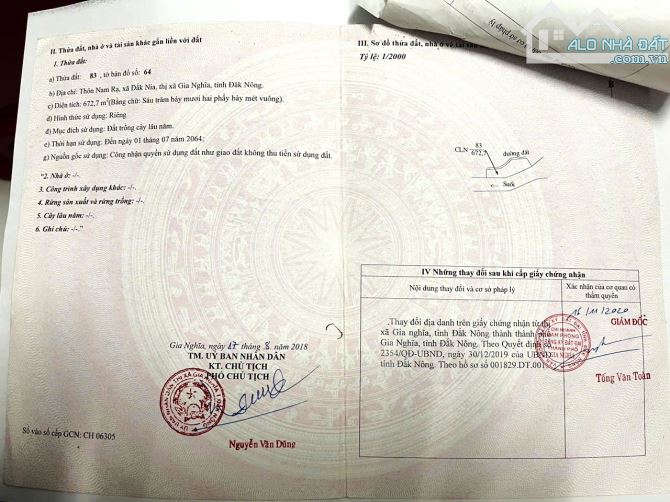 II. Thửa đất, nhà ở và tài sản khác gắn liền với đất
1. Thửa đất:
a) Thửa đất: 83, tờ bản đồ số: 64
b) Địa chỉ: Thôn Nam Rạ, xã Đắk Nia, thị xã Gia Nghĩa, tỉnh Đắk Nông.
c) Diện tích: 672,7 m²(Bằng chữ: Sáu trăm bảy mươi hai phẩy bảy mét vuông).
d) Hình thức sử dụng: Riêng
đ) Mục đích sử dụng: Đất trồng cây lâu năm.
e) Thời hạn sử dụng: Đến ngày 01 tháng 07 năm 2064;
g) Nguồn gốc sử dụng: Công nhận quyền sử dụng đất như giao đất không thu tiền sử dụng đất.
"2. Nhà ở: -/-.
3. Công trình xây dựng khác: -/-.
4. Rừng sản xuất và rừng trồng: -/-.
5. Cây lâu năm: -/-.
6. Ghi chú: -/-."
Gia Nghĩa, ngày 17 tháng 8 năm 2018
TM. UỶ BAN NHÂN DÂN
KT. CHỦ TỊCH
PHÓ CHỦ TỊCH
Nguyễn Văn Dũng
Số vào sổ cấp GCN: CH 06305
III. Sơ đồ thửa đất, nhà ở và tài sản
Tỷ lệ: 1/2000
ALO NHÀ ĐẤT
.com.vn
B
CLN 83
672,7
đường đất
Suối
IV Những thay đổi sau khi cấp giấy chứng nhận
Nội dung thay đổi và cơ sở pháp lý
Xác nhận của cơ quan có
thẩm quyền
16/11/2020
GIÁM ĐỐC
.Thay đổi địa danh trên giấy chứng nhận từ thị
xã Gia nghĩa, tỉnh Đắk Nông thành thành phố
Gia Nghĩa, tỉnh Đắk Nông. Theo Quyết định số
2354/QĐ-UBND, ngày 30/12/2019 của UBND
tỉnh Đắk Nông. Theo hồ sơ số 001829.DT.001
Tống Văn Toàn